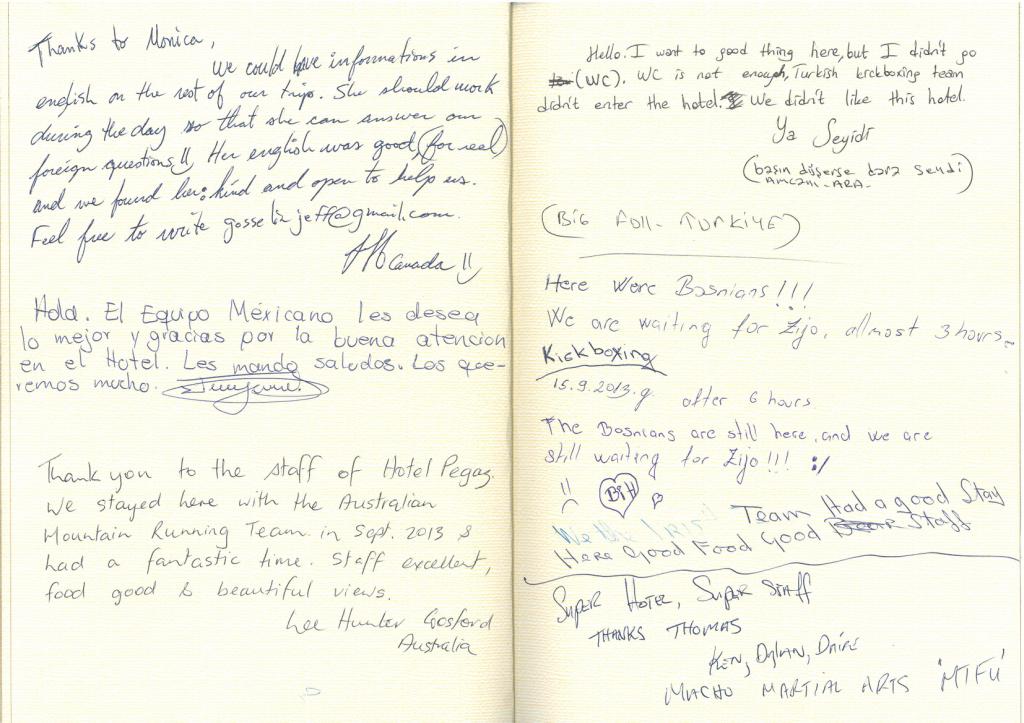 Thanks to Monica,
We could have informations in
english on the rest of our trip. She should work
during the day so that she can answer our
foreign questions!! Her english was good, (for real)
and we found her: kind and open to help us.
Feel free to write gosselinjeff@gmail.com.
Canada !!
Hola. El Equipo Méxicano les desea
lo mejor y gracias por la buena atencion
en el Hotel. Les mando saludos. Los que-
remos mucho.
Thank you to the staff of Hotel Pegaz.
We stayed here with the Australian
Mountain Running Team in Sept. 2013 &
had a fantastic time. Staff excellent,
food good & beautiful views.
Lee Hunter Gosford
Australia
Hello. I want to good thing here, but I didn't go
(WC). WC is not enough, Turkish kickboxing team
didn't enter the hotel. We didn't like this hotel.
Ya Seyidi
(başın düşerse dara sendi
AMCANI-ARA-
(BiG FOLL- TURKiYE)
Here Were Bosnians!!!
We are waiting for Zijo, allmost 3 hours.
Kickboxing
15.9.2013.g. after 6 hours
The Bosnians are still here, and we are
still waiting for Zijo!!! :/
BiH
We the IRISH Team Had a good Stay
Here Good Food Good Staff
SUPER HOTEL, SUPER STAFF
THANKS THOMAS
KEN, Dylan, Daire
MACHO MARTIAL ARTS 'MTFU'